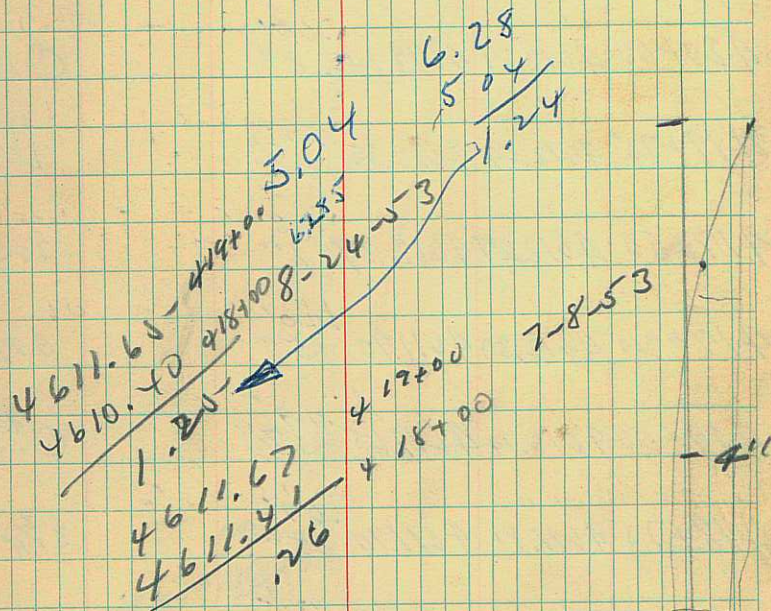 6.28
5.04
1.24
4611.65 - 419+00 5.04
4610.40 418+00 6.285 8-24-53
1.25
7-8-53
4611.67 419+00
4611.41 418+00
.26
4"